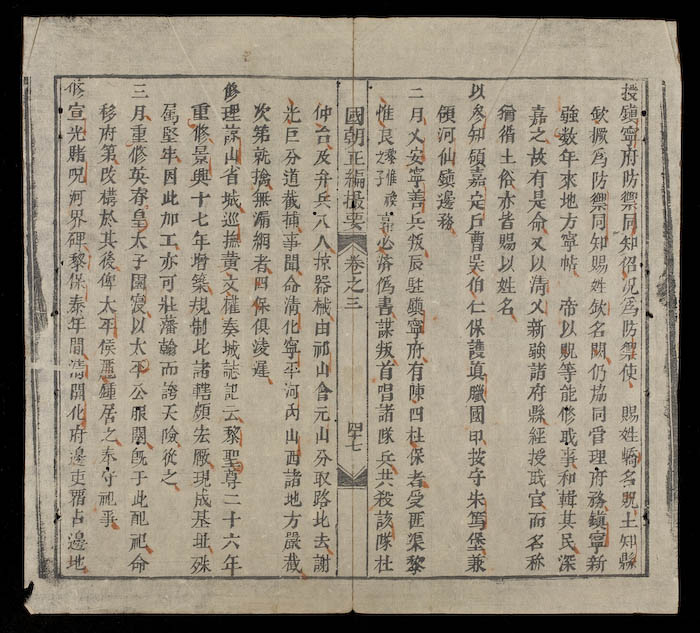 授鎮寧府防禦同知侶況為防禦使　賜姓橋名貺土知縣
欽為防禦同知賜姓欽名闕仍協同管理府務鎮寧新
強数年來地方寧帖　帝以貺等能修職事和輯其民深
嘉之故有是命又以清又新強諸府縣經授職官而名称
猶循土俗亦皆賜以姓名
以參知領嘉定戶曹吳伯仁保護真臘國印按守朱篤堡兼
領河仙鎮邊務
二月乂安寧善兵叛辰駐鎮寧府有陳四杜保者受匪渠黎
惟良惟之子必濟偽書謀叛首唱諸隊兵共殺該隊杜
國朝正編撮要　卷之三　四十七
仲台及弁兵八人掠器械由祁山會元山分取路北去謝
光巨分道截捕事聞命清化寧平河內山西諸地方嚴截
次第就擒無漏網者四保俱凌遲
修理諒山省城巡撫黃文權奏城誌記云黎聖尊二十六年
重修景興十七年增築規制比諸轄頗宏敞現成基址殊
屬堅牢因此加工亦可壯藩翰而誇天險從之
三月重修英睿皇太子園寢以太平公服闋既于此配祀命
移府第改構於其後俾太平侯蕙鍾居之奉守祀事
修宣光賭咒河界碑黎保泰年間清開化府邊吏冒占邊地